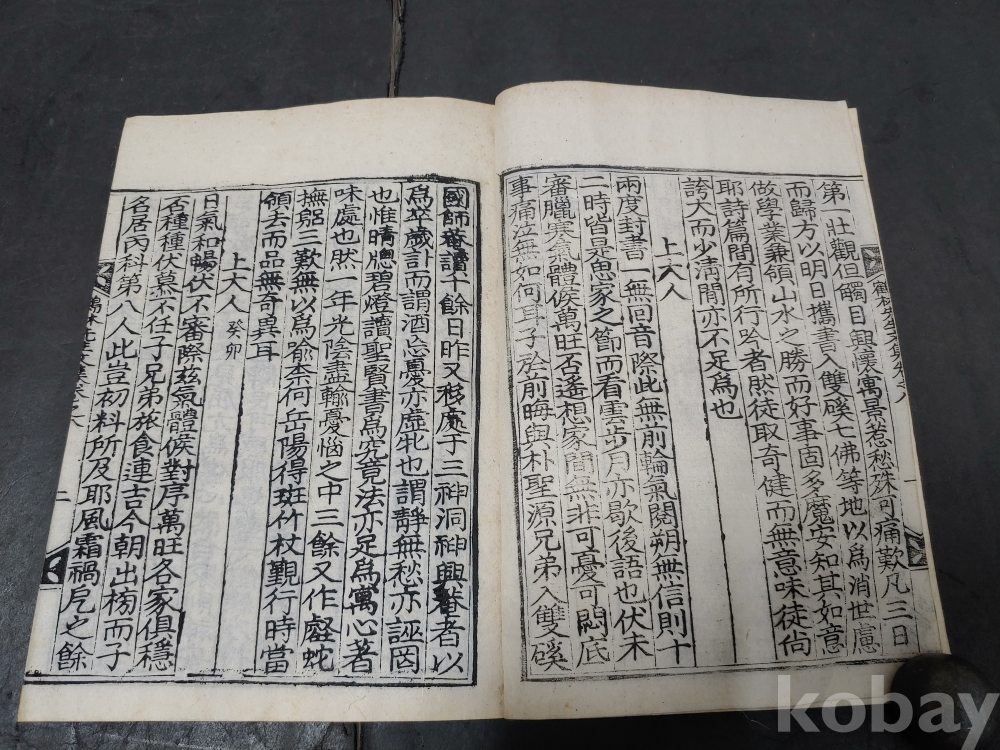 第一壯觀但觸目興懷寓景惹愁殊可痛歎凡三日
而歸方以明日攜書入雙磎七佛等地以爲消世慮
做學業兼領山水之勝而好事固多魔安知其如意
耶詩篇間有所行吟者然徒取奇健而無意味徒尙
誇大而少淸閒亦不足爲也
上大人
兩度封書一無回音際此無前輪氣閱朔無信則十
二時皆是思家之節而看雲步月亦歇後語也伏未
審臘寒氣體候萬旺否遙想家間無非可憂可悶底
事痛泣無如何耳子於前晦與朴聖源兄弟入雙磎
國師菴讀十餘日昨又移處于三神洞神興菴者以
爲卒歲計而謂酒忘憂亦虛牝也謂靜無愁亦誣罔
也惟晴牕碧燈讀聖賢書爲究竟法亦足爲寓心著
味處也然一年光陰盡輸憂惱之中三餘又作壑蛇
撫躬三歎無以爲喩柰何岳陽得斑竹杖覲行時當
領去而品無奇異耳
上大人 癸卯
日氣和暢伏不審際玆氣體候對序萬旺各家俱穩
否種種伏慕不任子兄弟旅食連吉今朝出榜而子
名居內科第八人此豈初料所及耶風霜禍戹之餘
一
二
kobay